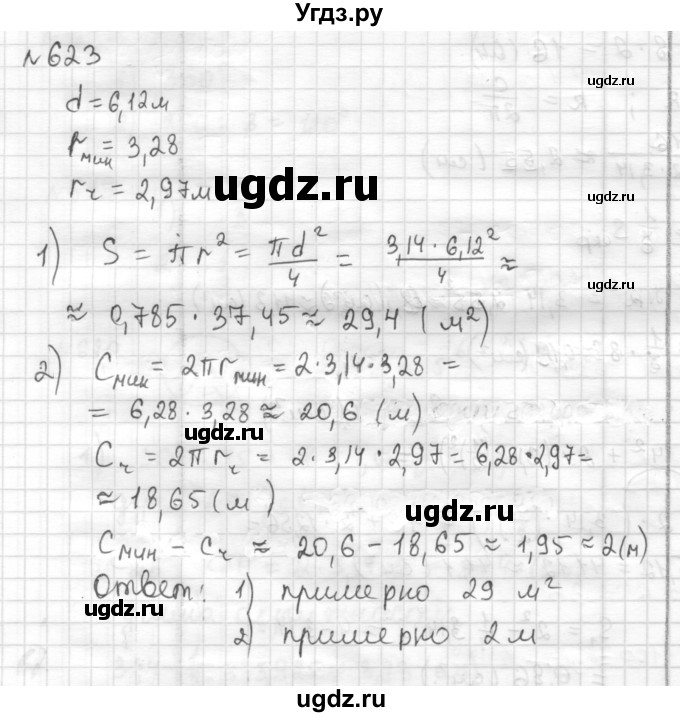 Угдз.ру
№623
ugdz.ru
d = 6,12м
rмин = 3,28
ugdz.ru
rч = 2,97м
ugdz.ru
ugdz.ru
1) S = πr² = πd²/4 = 3,14 · 6,12²/4 ≈
≈ 0,785 · 37,45 ≈ 29,4 (м²)
2) Cмин = 2πrмин = 2·3,14·3,28 =
= 6,28 · 3,28 ≈ 20,6 (м)
ugdz.ru
ugdz.ru
Cч = 2πrч = 2·3,14·2,97 = 6,28·2,97=
≈ 18,65 (м)
ugdz.ru
Cмин – Cч ≈ 20,6 – 18,65 ≈ 1,95 ≈ 2(м)
Ответ: 1) примерно 29 м²
ugdz.ru
2) примерно 2м
ugdz.ru
ugdz.ru